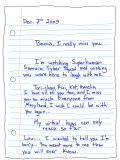 Dec. 7th 2009
Bianca, I really miss you.
I'm watching Superhuman
Samurai Syber Squad and wishing
you were here to laugh with me.
Tori, Jenny, Kari, Kat, Amelia,
I love all of you too, and I miss
you so much. Everyone from
Maryland, I wish I could be with
you again.
My virtual hugs can only
reach so far.
I wanted to tell you I'm
sorry. You meant more to me than
you will ever know.